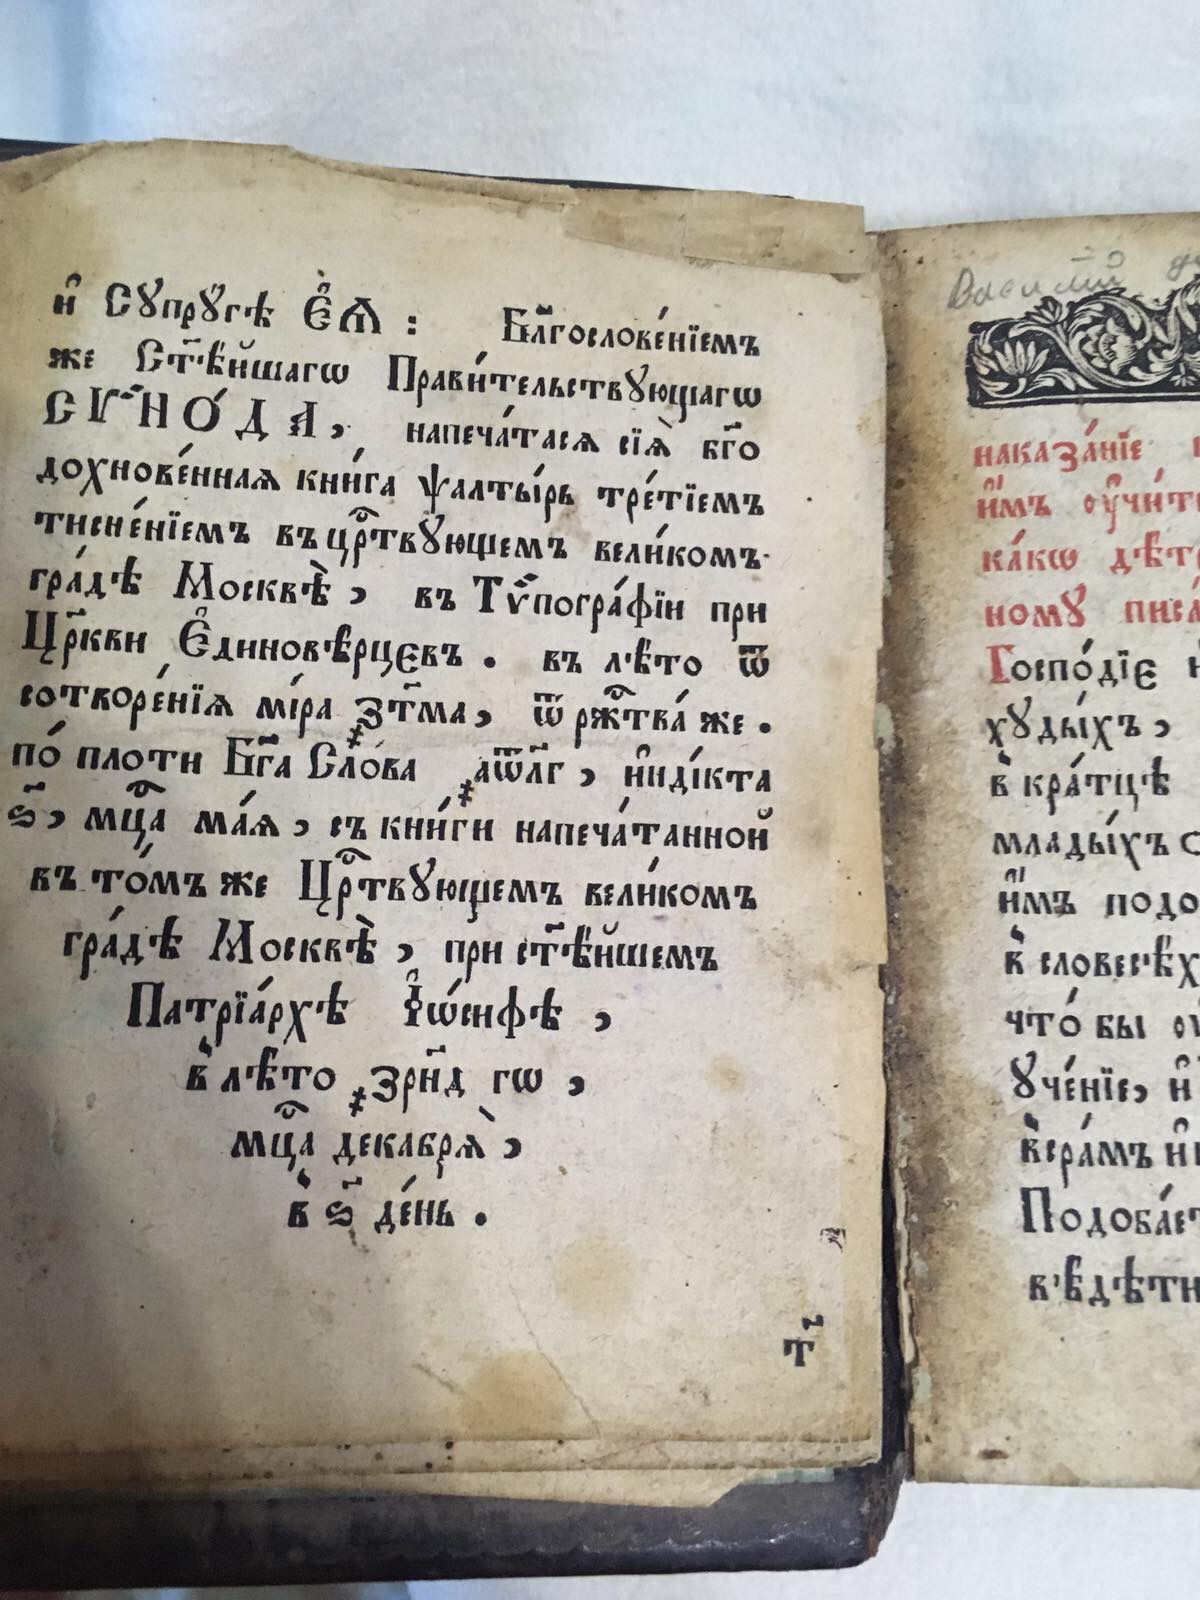 и҆̀ Сꙋпрꙋ́гѣ Є҆Ѧ̀ : Бл҃гослове́нїемъ
же Ст҃ѣ́йшагѡ Прави́тельствꙋющагѡ
СѴНО́ДА, напеча́тасѧ сїѧ̀ бг҃о
дохнове́ннаѧ кни́га ѱалты́рь тре́тїемъ
тисне́нїемъ въ црⷭ҇твꙋющемъ вели́комъ
гра́дѣ Москвѣ̀, въ Тѷпогра́фїи при
Цр҃кви Є҆диновѣ́рцєвъ . въ лѣ́то ѿ
сотворе́нїѧ мі́ра ҂зт҃ма, ѿ ржⷭ҇тва́ же .
по́ плоти Бг҃а Сло́ва ҂аѿл҃г, и҆ндї́кта
ѕ҃, мцⷭ҇а ма́ѧ, съ кни́ги напеча́танной
въ то́мъ же Црⷭ҇твꙋющемъ вели́комъ
гра́дѣ Москвѣ̀, при ст҃ѣ́йшемъ
Патрїа́рхѣ І҆ѡ́сифѣ,
в̾ лѣ́то ҂зрн҃д гѡ,
мцⷭ҇а декабрѧ̀,
в̾ ѕ҃ де́нь .
т
Василий
наказа́нїе
и҆̀мъ ᲂу҆чи́т
ка́кѡ дѣ́т
номꙋ писа́
Госпо́дїє
хꙋды́хъ,
в̾ кра́тцѣ
млады́хъ с
и҆̀мъ подо
в̾ словесѣ́х
что́ бы ᲂу
ꙋче́нїе, и҆
в̾сра́мъ и҆
Подоба́ет
вѣ́дѣти